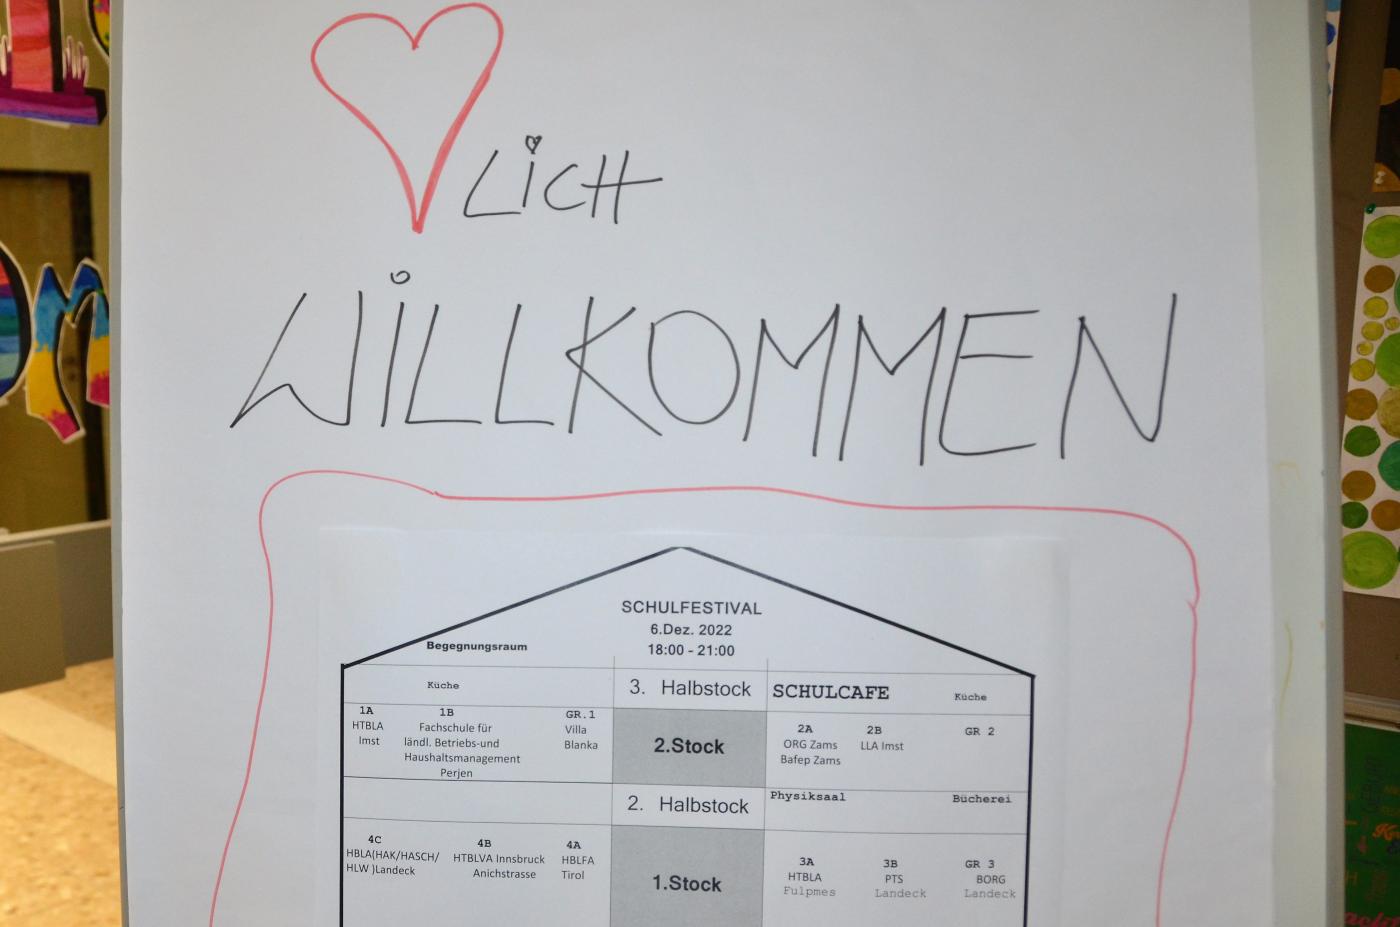 LiCH
WiLLKOMMEN
SCHULFESTIVAL
6.Dez. 2022
18:00 - 21:00
Begegnungsraum
Küche
3. Halbstock
SCHULCAFE
Küche
1A
HTBLA
Imst
1B
Fachschule für
ländl. Betriebs-und
Haushaltsmanagement
Perjen
GR.1
Villa
Blanka
2.Stock
2A
ORG Zams
Bafep Zams
2B
LLA Imst
GR 2
2. Halbstock
Physiksaal
Bücherei
4C
HBLA(HAK/HASCH/
HLW )Landeck
4B
HTBLVA Innsbruck
Anichstrasse
4A
HBLFA
Tirol
1.Stock
3A
HTBLA
Fulpmes
3B
PTS
Landeck
GR 3
BORG
Landeck